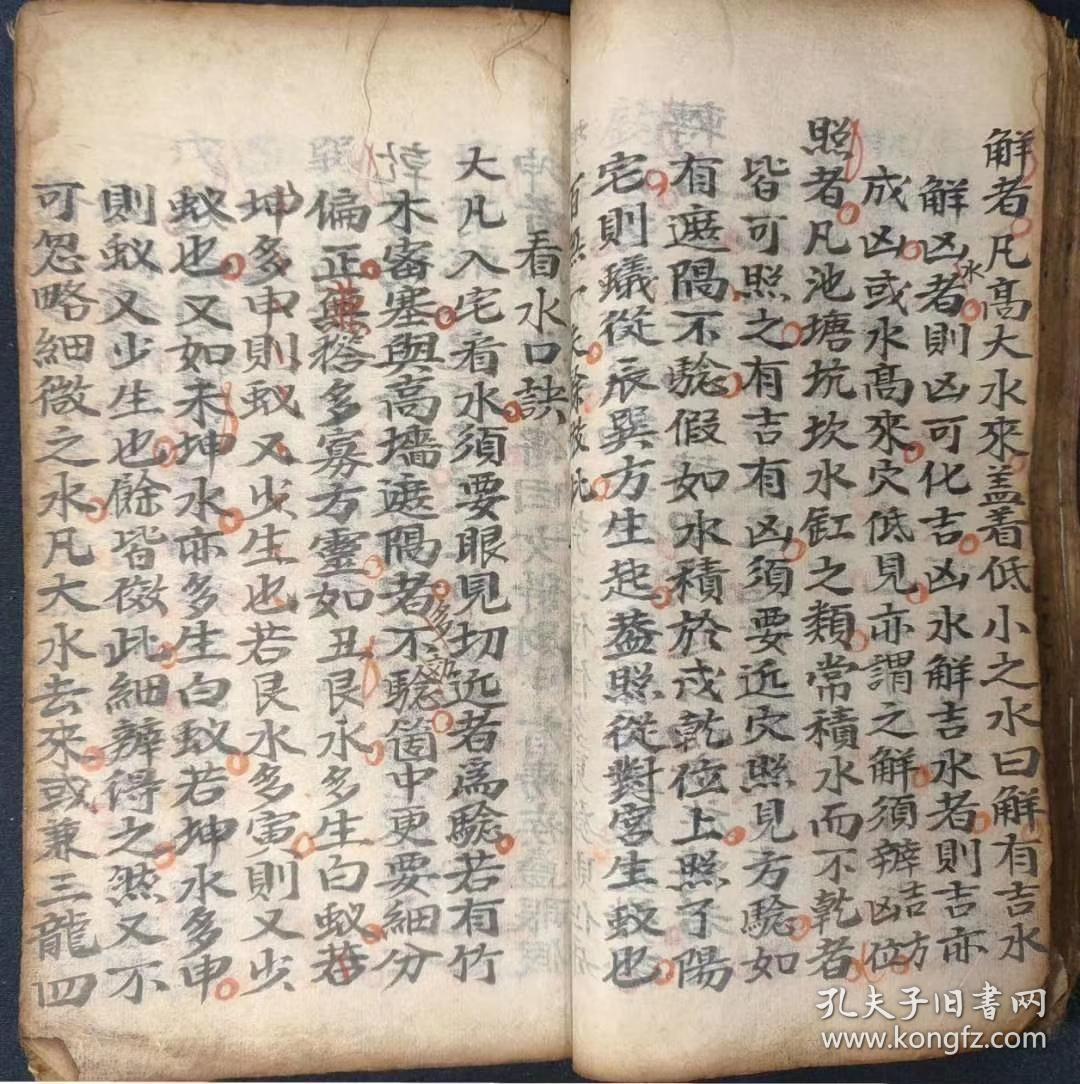 解者凡高大水來盖着低小之水曰解有吉水
解凶水者則凶可化吉凶水解吉水者則吉亦
成凶或水高來穴低見亦謂之解須辨吉凶方位
照者凡池塘坑坎水缸之類常積水而不乾者
皆可照之有吉有凶須要近穴照見方驗如
有遮隔不驗假如水積於戌乾位上照了陽
宅則蟻從辰巽方生起葢照從對宮生蚁也
看水口訣
大凡入宅看水須要眼見切近者爲驗若有竹
木密塞與高墻遮隔者多不驗箇中更要細分
偏正兼搭多寡方靈如丑艮水多生白蚁若
坤多申則蚁又少生也若艮水多寅則又少
蚁也又如未坤水亦多生白蚁若坤水多申
則蚁又少生也餘皆倣此細辨得之然又不
可忽略細微之水凡大水去來或兼三龍四
孔夫子旧书网
www.kongfz.com